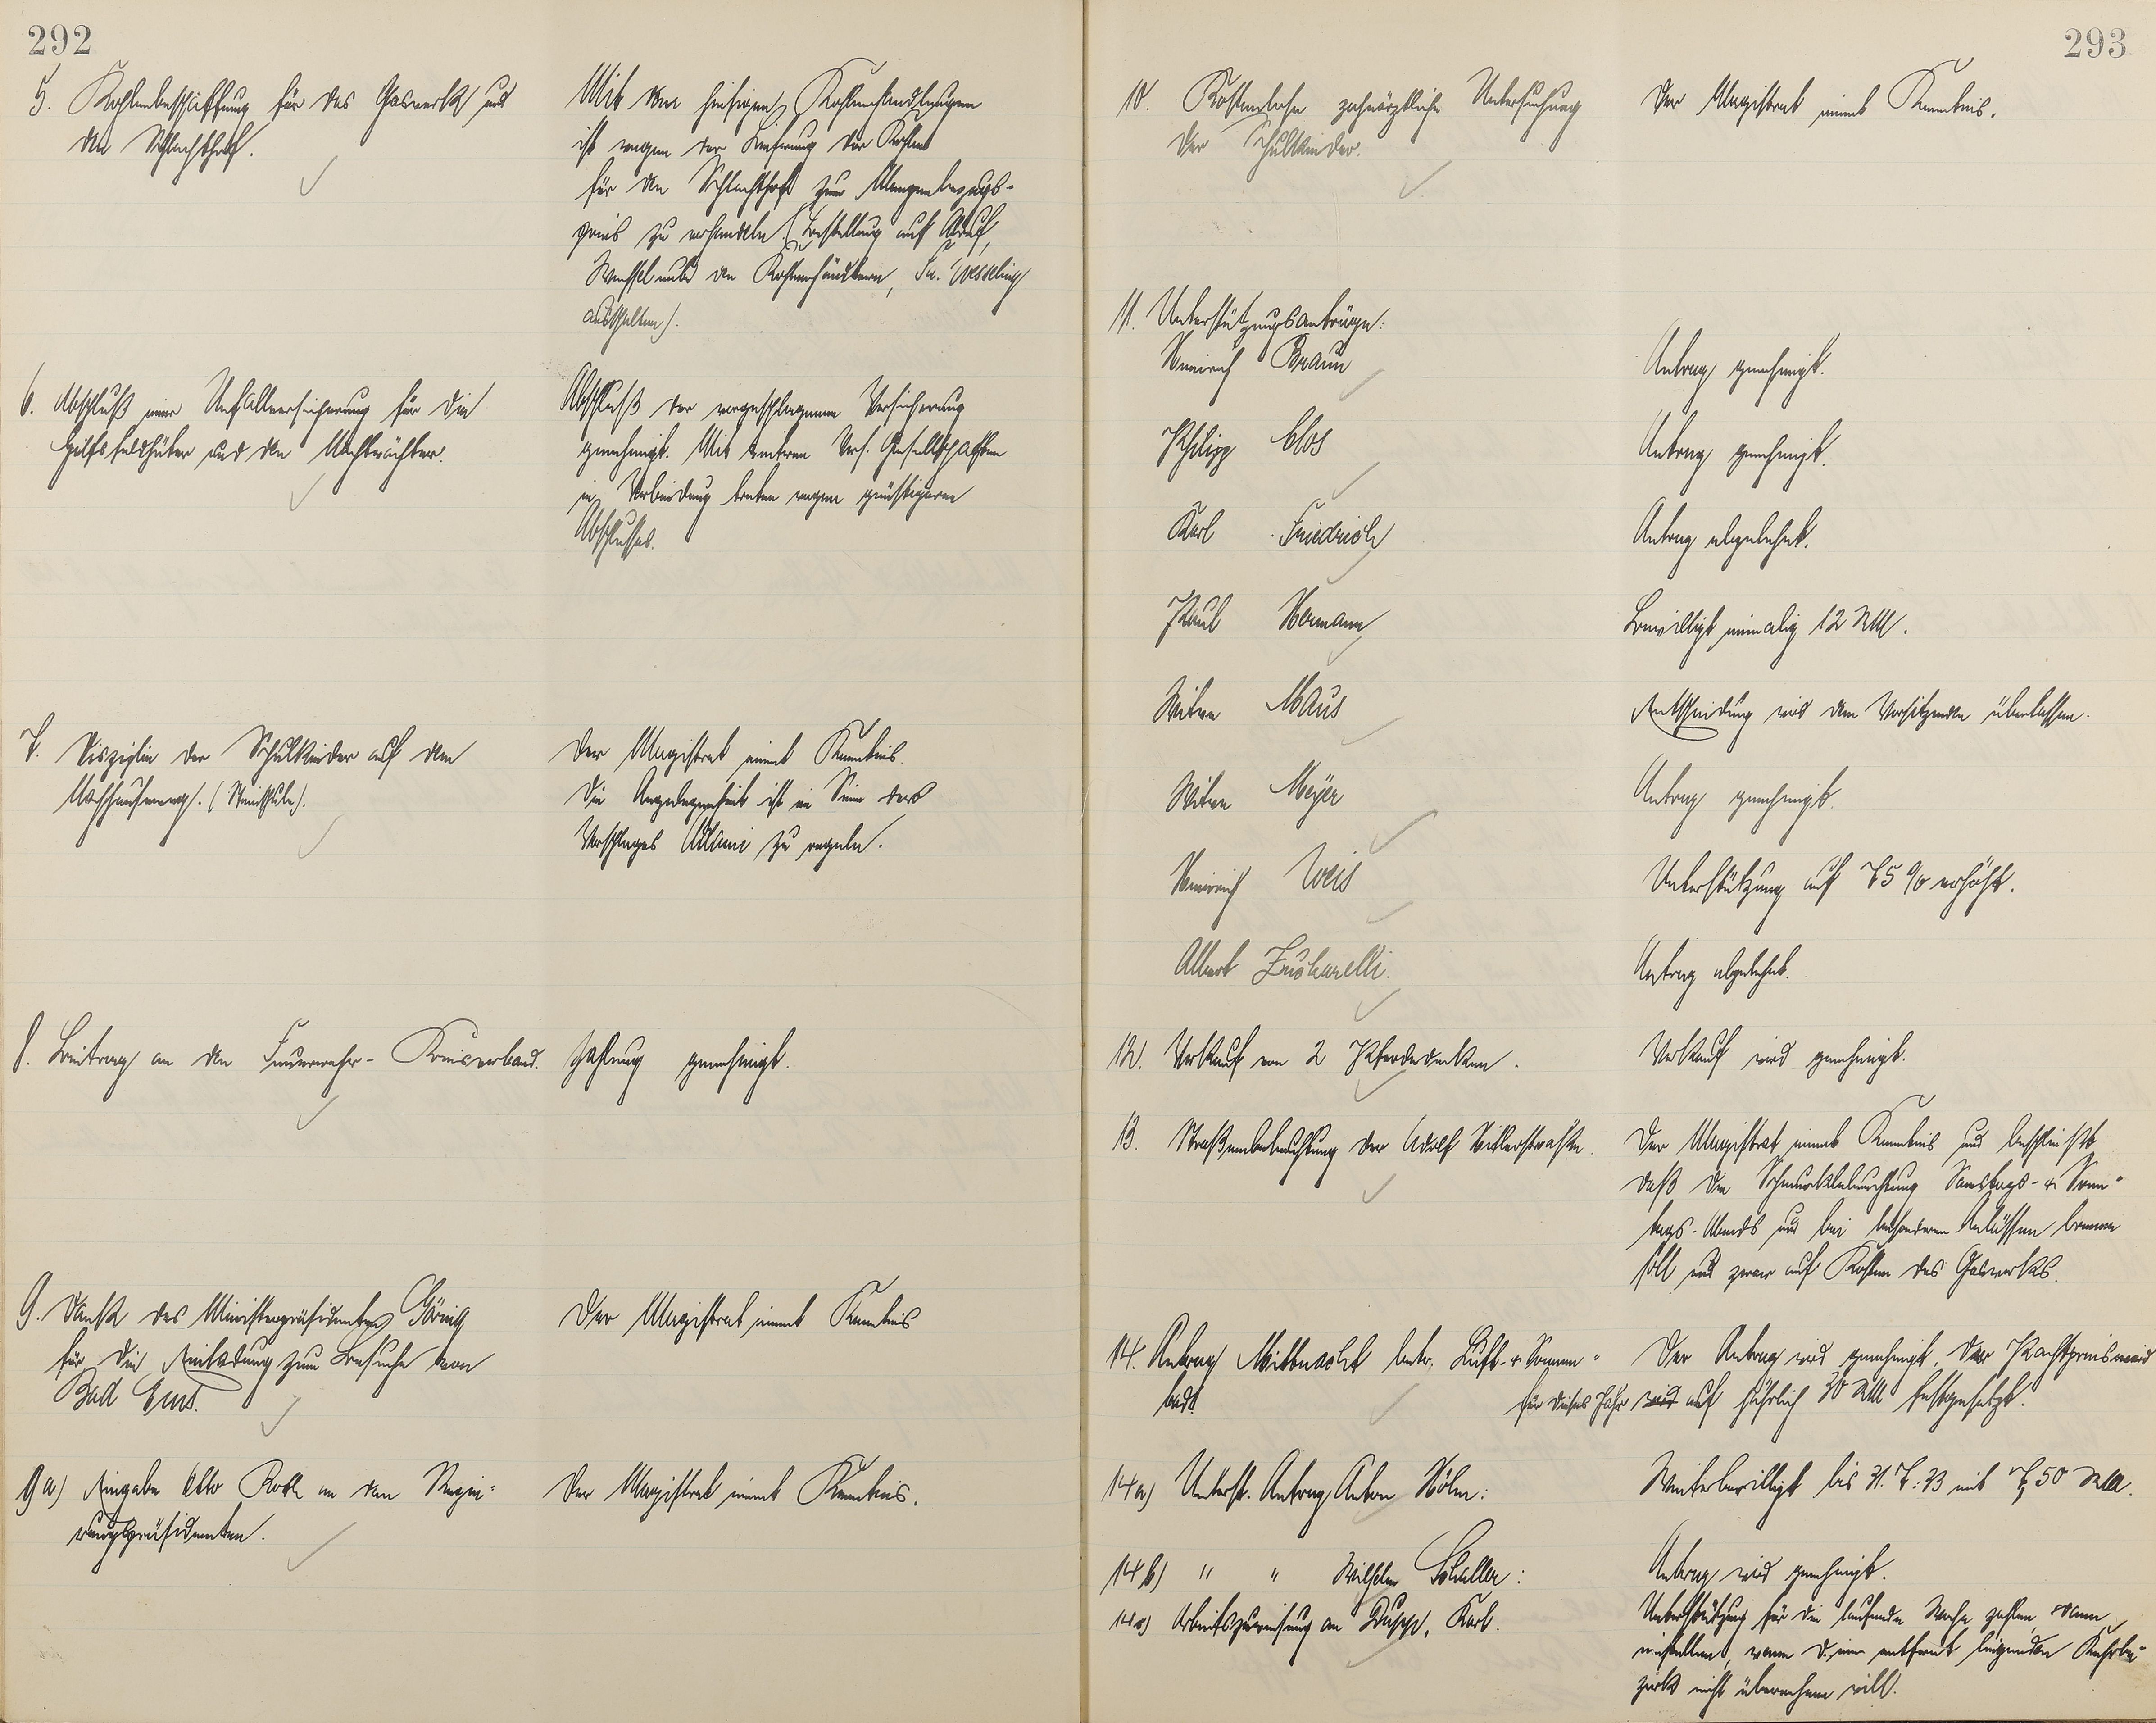 292
5. Kohlenbeschaffung für das Gaswerk und
den Schlachthof.
Mit den hiesigen Kohlenhandlungen
ist wegen der Lieferung der Kohlen
für den Schlachthof zum Mengenbezugs-
preis zu verhandeln. (Bestellung auf Abruf,
Wechsel unter den Kohlenhändlern, Fa. Wesseling
ausschalten).
6. Abschluß einer Unfallversicherung für die
Hilfsfeldhüter und den Nachtwächter.
Abschluß der vorgeschlagenen Versicherung
genehmigt. Mit anderen Vers. Gesellschaften
in Verbindung treten wegen günstigeren
Abschlusses.
7. Disziplin der Schulkinder auf dem
(Steinschule).
Der Magistrat nimmt Kenntnis.
Die Angelegenheit ist im Sinne des
Vorschlages Adami zu regeln.
8. Beitrag an den Feuerwehr-Kreisverband.
Zahlung genehmigt.
9. Dank des Ministerpräsidenten Göring
für die Einladung zum Besuche von
Bad Ems.
Der Magistrat nimmt Kenntnis
9a) Eingabe Otto Roth an den Regie-
rungspräsidenten.
Der Magistrat nimmt Kenntnis.
293
10. Kostenlose zahnärztliche Untersuchung
der Schulkinder.
Der Magistrat nimmt Kenntnis.
11. Unterstützungsanträge:
Heinrich Braun
Antrag genehmigt.
Philipp Clos
Antrag genehmigt.
Karl Friedrich
Antrag abgelehnt.
Paul Hermann
Bewilligt einmalig 12 RM.
Witwe Maus
Entscheidung wird dem Vorsitzenden überlassen.
Witwe Meyer
Antrag genehmigt.
Heinrich Weis
Unterstützung auf 75 % erhöht.
Albert Zucharelli.
Antrag abgelehnt.
12. Verkauf von 2 Pferdedecken.
Verkauf wird genehmigt.
13. Straßenbeleuchtung der Adolf Hitlerstraße.
Der Magistrat nimmt Kenntnis und beschließt
daß die Schmuckbeleuchtung Samstags- & Sonn-
tags-Abends und bei besonderen Anlässen brennen
soll und zwar auf Kosten des Gaswerks.
14. Antrag Mittnacht betr. Luft- & Sonnen-
bad.
Der Antrag wird genehmigt. Der Pachtpreis wird
für dieses Jahr wird auf jährlich 30 RM festgesetzt.
14a) Unterst. Antrag Anton Höhn:
Weiterbewilligt bis 31.7.33 mit 7,50 RM.
14b) " " Wilhelm Schaller:
Antrag wird genehmigt.
14c) Arbeitszuweisung an Dupp, Karl.
Unterstützung für die laufende Woche zahlen, dann
einstellen, wenn D. einen entfernt liegenden Kehrbe-
zirk nicht übernehmen will.